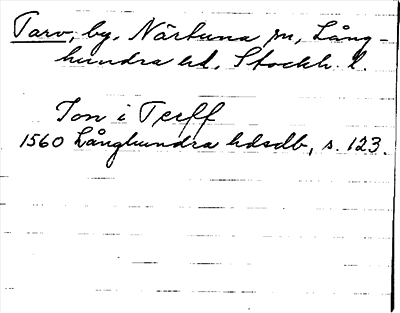 Tarv, by, Närtuna sn, Lång-
hundra hd, Stockh. l.
Jon i Terff
1560 Långhundra hdsdb, s. 123.